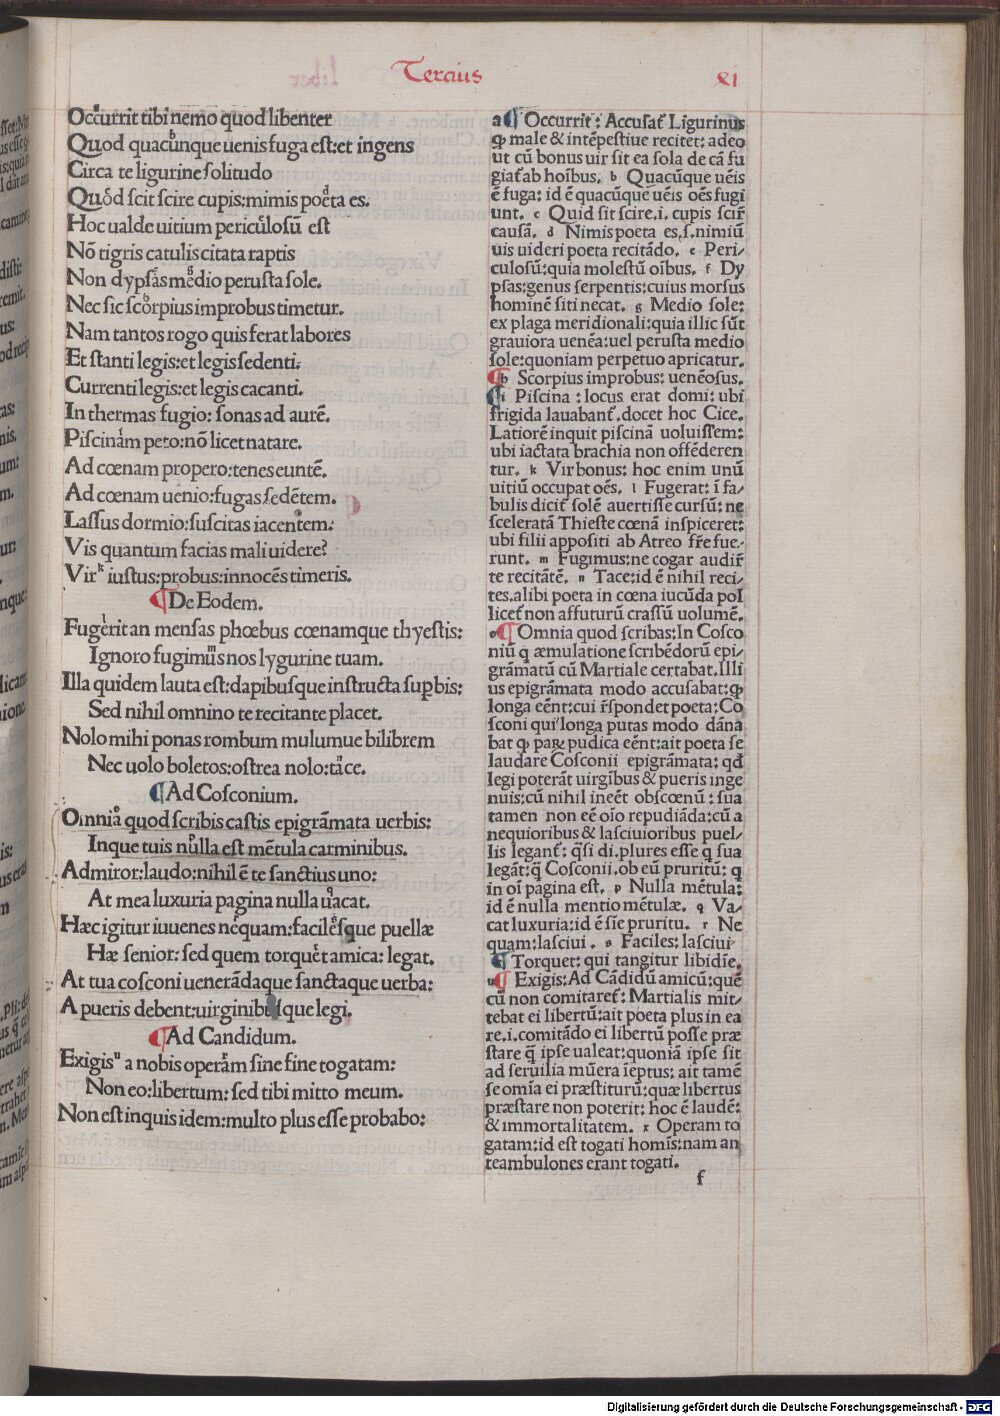 Tercius
XI
Occurrit tibi nemo quod libenter
Quod quacūnque uenis fuga est:et ingens
Circa te ligurine solitudo
Quod scit scire cupis:mimis poeta es.
Hoc ualde uitium periculosū est
Nō tigris catulis citata raptis
Non dypsas medio perusta sole.
Nec sic scorpius improbus timetur.
Nam tantos rogo quis ferat labores
Et stanti legis:et legis sedenti.
Currenti legis:et legis cacanti.
In thermas fugio: sonas ad aurē.
Piscinam peto:nō licet natare.
Ad cœnam propero:tenes euntē.
Ad cœnam uenio:fugas sedētem.
Lassus dormio:suscitas iacentem:
Vis quantum facias mali uidere?
Vir iustus:probus:innocēs timeris.
¶ De Eodem.
Fugerit an mensas phœbus cœnamque thyestis:
Ignoro fugimus nos lygurine tuam.
Illa quidem lauta est:dapibusque instructa supbis:
Sed nihil omnino te recitante placet.
Nolo mihi ponas rombum mulumue bilibrem
Nec uolo boletos:ostrea nolo:tace.
¶ Ad Cosconium.
Omnia quod scribis castis epigrāmata uerbis:
Inque tuis nulla est mētula carminibus.
Admiror:laudo:nihil ē te sanctius uno:
At mea luxuria pagina nulla uacat.
Hæc igitur iuuenes nequam:facilesque puellæ
Hæ senior: sed quem torquet amica: legat.
At tua cosconi uenerādaque sanctaque uerba:
A pueris debent:uirginibusque legi.
¶ Ad Candidum.
Exigis a nobis operam sine fine togatam:
Non eo:libertum: sed tibi mitto meum.
Non est inquis idem:multo plus esse probabo:
a ¶ Occurrit: Accusat Ligurinus
ꝙ male & intēpestiue recitet; adeo
ut cū bonus uir sit ea sola de cā fu
giat ab hoībus. b Quacūque uēis
ē fuga: id ē quacūque uēis oēs fugi
unt. c Quid sit scire.i. cupis scir
causā. d Nimis poeta es.s.nimiū
uis uideri poeta recitādo. e Peri⸗
culosū:quia molestū oībus. f Dy
psas:genus serpentis:cuius morsus
hominē siti necat. g Medio sole:
ex plaga meridionali:quia illic sūt
grauiora uenēa:uel perusta medio
sole:quoniam perpetuo apricatur.
¶ h Scorpius improbus: uenēosus.
¶ i Piscina : locus erat domi: ubi
frigida lauabant.docet hoc Cice.
Latiorē inquit piscinā uoluissem:
ubi iactata brachia non offēderen
tur. k Vir bonus: hoc enim unū
uitiū occupat oēs. l Fugerat: ī fa⸗
bulis dicit solē auertisse cursū: ne
sceleratā Thieste cœnā inspiceret:
ubi filii appositi ab Atreo fre fue⸗
runt. m Fugimus:ne cogar audir
te recitātē. n Tace:id ē nihil reci⸗
tes.alibi poeta in cœna iucūda pol
licet non affuturū crassū uolumē.
o ¶ Omnia quod scribas:In Cosco
niū q æmulatione scribēdorū epi⸗
grāmatū cū Martiale certabat.Illi
us epigrāmata modo accusabat:ꝙ
longa eēnt:cui rn̄spondet poeta:Co
sconi qui longa putas modo dāna
bat ꝙ parꝝ pudica eēnt:ait poeta se
laudare Cosconii epigrāmata: qd
legi poterāt uirgībus & pueris inge
nuis:cū nihil ineēt obscœnū : sua
tamen non eē oīo repudiāda:cū a
nequioribus & lasciuioribus puel⸗
lis legant: qsi di.plures esse q sua
legāt:q̄ Cosconii.ob eū pruritū: q
in oī pagina est. p Nulla mētula:
id ē nulla mentio mētulæ. q Va⸗
cat luxuria:id ē sīe pruritu. r Ne
quam:lasciui. s Faciles: lasciui
¶ Torquet: qui tangitur libidīe.
u ¶ Exigis: Ad Cādidū amicū:quē
cū non comitaret: Martialis mit⸗
tebat ei libertū:ait poeta plus in ea
re.i.comitādo ei libertū posse præ
stare q̄ ipse ualeat:quoniā ipse sit
ad seruilia mūera īeptus: ait tamē
se omīa ei præstiturū:quæ libertus
præstare non poterit: hoc ē laudē:
& immortalitatem. x Operam to
gatam:id est togati homīs:nam an
teambulones erant togati.
f
Digitalisierung gefördert durch die Deutsche Forschungsgemeinschaft - DFG